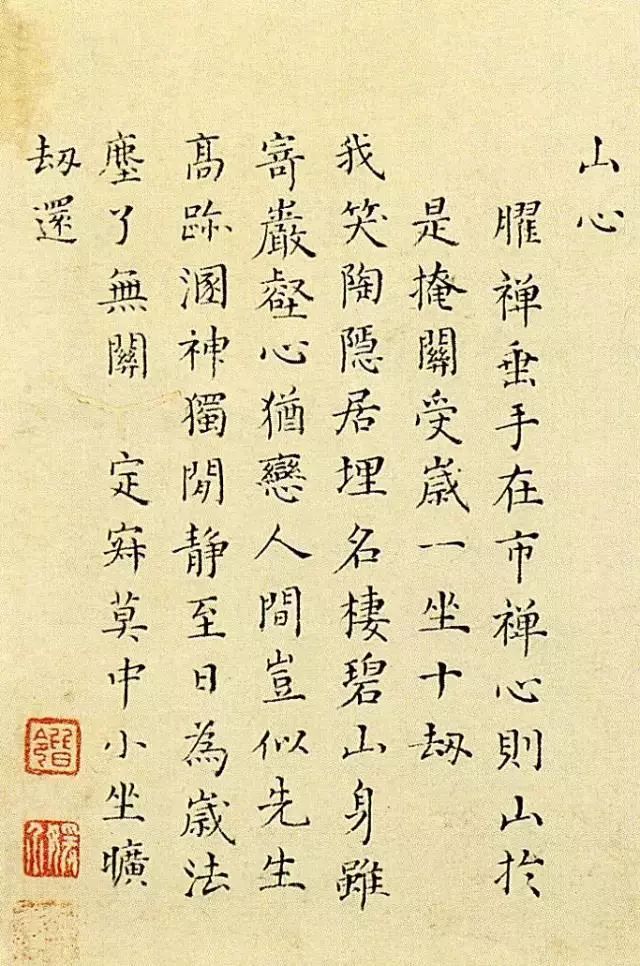 山心
臞禅垂手在市禅心則山扵
是掩關受歲一坐十刼
我笑陶隱居埋名棲碧山身雖
寄巖壑心猶戀人間豈似先生
髙跡溷神獨閒静至日為歲法
塵了無關 定寂莫中小坐曠
刼還